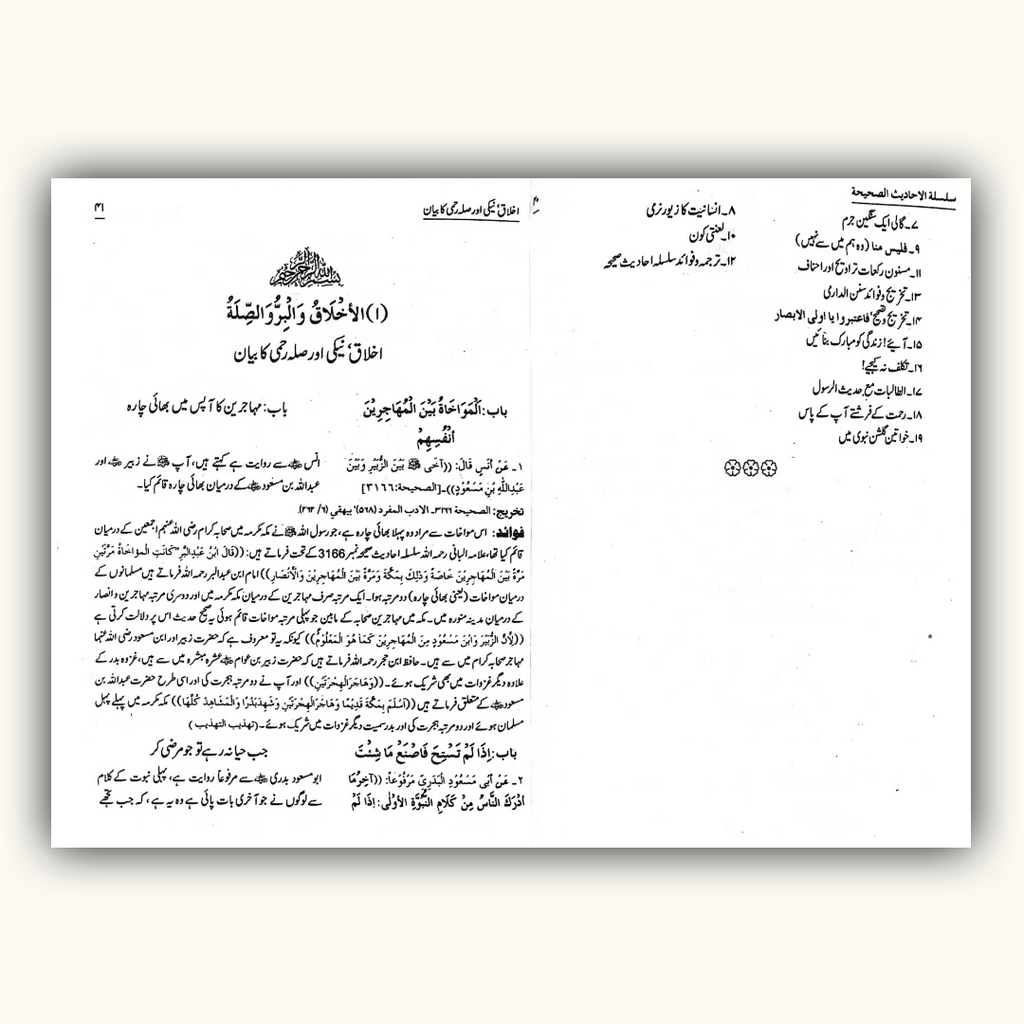 سلسلة الاحادیث الصحیحة
۷۔ گالی ایک سنگین جرم
۸۔ انسانیت کا زیور نرمی
۹۔ فلیس منا (وہ ہم میں سے نہیں)
۱۰۔ لعنتی کون
۱۱۔ مسنون رکعات تراویح اور احناف
۱۲۔ ترجمہ و فوائد سلسلہ احادیث صحیحہ
۱۳۔ تخریج و فوائد سنن الدارمی
۱۴۔ تخریج و تصحیح ’فاعتبروا یا اولی الابصار
۱۵۔ آیئے! زندگی کو مبارک بنائیں
۱۶۔ تکلف نہ کیجیے!
۱۷۔ الطالبات مع حدیث الرسول
۱۸۔ رحمت کے فرشتے آپ کے پاس
۱۹۔ خواتین گلشن نبوی میں
اخلاق، نیکی اور صلہ رحمی کا بیان
۴۱
بسم الله الرحمن الرحيم
(۱) الأخْلَاقُ وَالْبِرُّ وَالصِّلَةُ
اخلاق، نیکی اور صلہ رحمی کا بیان
باب: اَلْمَوَاخَاةُ بَيْنَ الْمُهَاجِرِيْنَ
اَنْفُسِهِمْ
باب: مہاجرین کا آپس میں بھائی چارہ
۱۔ عَنْ أَنَسٍ قَالَ: ((آخَى ﷺ بَيْنَ الزُّبَيْرِ وَبَيْنَ
عَبْدِاللّٰهِ بْنِ مَسْعُوْدٍ))۔[الصحيحة:۳۱۶۶]
انس ؓ سے روایت ہے کہتے ہیں، آپ ﷺ نے زبیر ؓ اور
عبداللہ بن مسعود ؓ کے درمیان بھائی چارہ قائم کیا۔
تخریج: الصحیحة ۳۱۶۶۔ الادب المفرد (۵۶۸)' بیهقی (۶/ ۲۶۲)۔
فوائد: اس مواخات سے مراد وہ پہلا بھائی چارہ ہے، جو رسول اللہ ﷺ نے مکہ مکرمہ میں صحابہ کرام رضی اللہ عنہم اجمعین کے درمیان
قائم کیا تھا، علامہ البانی رحمہ اللہ سلسلہ احادیث صحیحہ نمبر 3166 کے تحت فرماتے ہیں: ((قَالَ ابْنُ عَبْدِالْبَرِّ "كَانَتِ الْمُؤَاخَاةُ مَرَّتَيْنِ
مَرَّةً بَيْنَ الْمُهَاجِرِيْنَ خَاصَّةً وَذٰلِكَ بِمَكَّةَ وَمَرَّةً بَيْنَ الْمُهَاجِرِيْنَ وَالْأَنْصَارِ)) امام ابن عبدالبر رحمہ اللہ فرماتے ہیں مسلمانوں کے
درمیان مواخات (یعنی بھائی چارہ) دو مرتبہ ہوا۔ ایک مرتبہ صرف مہاجرین کے درمیان مکہ مکرمہ میں اور دوسری مرتبہ مہاجرین و انصار
کے درمیان مدینہ منورہ میں۔ مکہ میں مہاجرین صحابہ کے مابین جو پہلی مرتبہ مواخات قائم ہوئی یہ صحیح حدیث اس پر دلالت کرتی ہے
((لِأَنَّ الزُّبَيْرَ وَابْنَ مَسْعُوْدٍ مِنَ الْمُهَاجِرِيْنَ كَمَا هُوَ الْمَعْلُوْمُ)) کیونکہ یہ تو معروف ہے کہ حضرت زبیر اور ابن مسعود رضی اللہ عنہما
مہاجر صحابہ کرام میں سے ہیں۔ حافظ ابن حجر رحمہ اللہ فرماتے ہیں کہ حضرت زبیر بن عوام ؓ عشرہ مبشرہ میں سے ہیں، غزوہ بدر کے
علاوہ دیگر غزوات میں بھی شریک ہوئے۔ ((وَهَاجَرَ الْهِجْرَتَيْنِ)) اور آپ نے دو مرتبہ ہجرت کی اور اسی طرح حضرت عبداللہ بن
مسعود ؓ کے متعلق فرماتے ہیں ((اَسْلَمَ بِمَكَّةَ قَدِيْمًا وَهَاجَرَ الْهِجْرَتَيْنِ وَشَهِدَ بَدْرًا وَالْمَشَاهِدَ كُلَّهَا)) مکہ مکرمہ میں پہلے پہل
مسلمان ہوئے اور دو مرتبہ ہجرت کی اور بدر سمیت دیگر غزوات میں شریک ہوئے۔ (تهذیب التهذیب)
باب: اِذَا لَمْ تَسْتِحِ فَاصْنَعْ مَا شِئْتَ
جب حیا نہ رہے تو جو مرضی کر
۲۔ عَنْ أَبِى مَسْعُوْدٍ الْبَدْرِيِّ مَرْفُوْعاً: ((آخِرُمَا
أَدْرَكَ النَّاسُ مِنْ كَلَامِ النُّبُوَّةِ الأُوْلٰى: إِذَا لَمْ
ابو مسعود بدری ؓ سے مرفوعاً روایت ہے، پہلی نبوت کے کلام
سے لوگوں نے جو آخری بات پائی ہے وہ یہ ہے، کہ جب تجھے